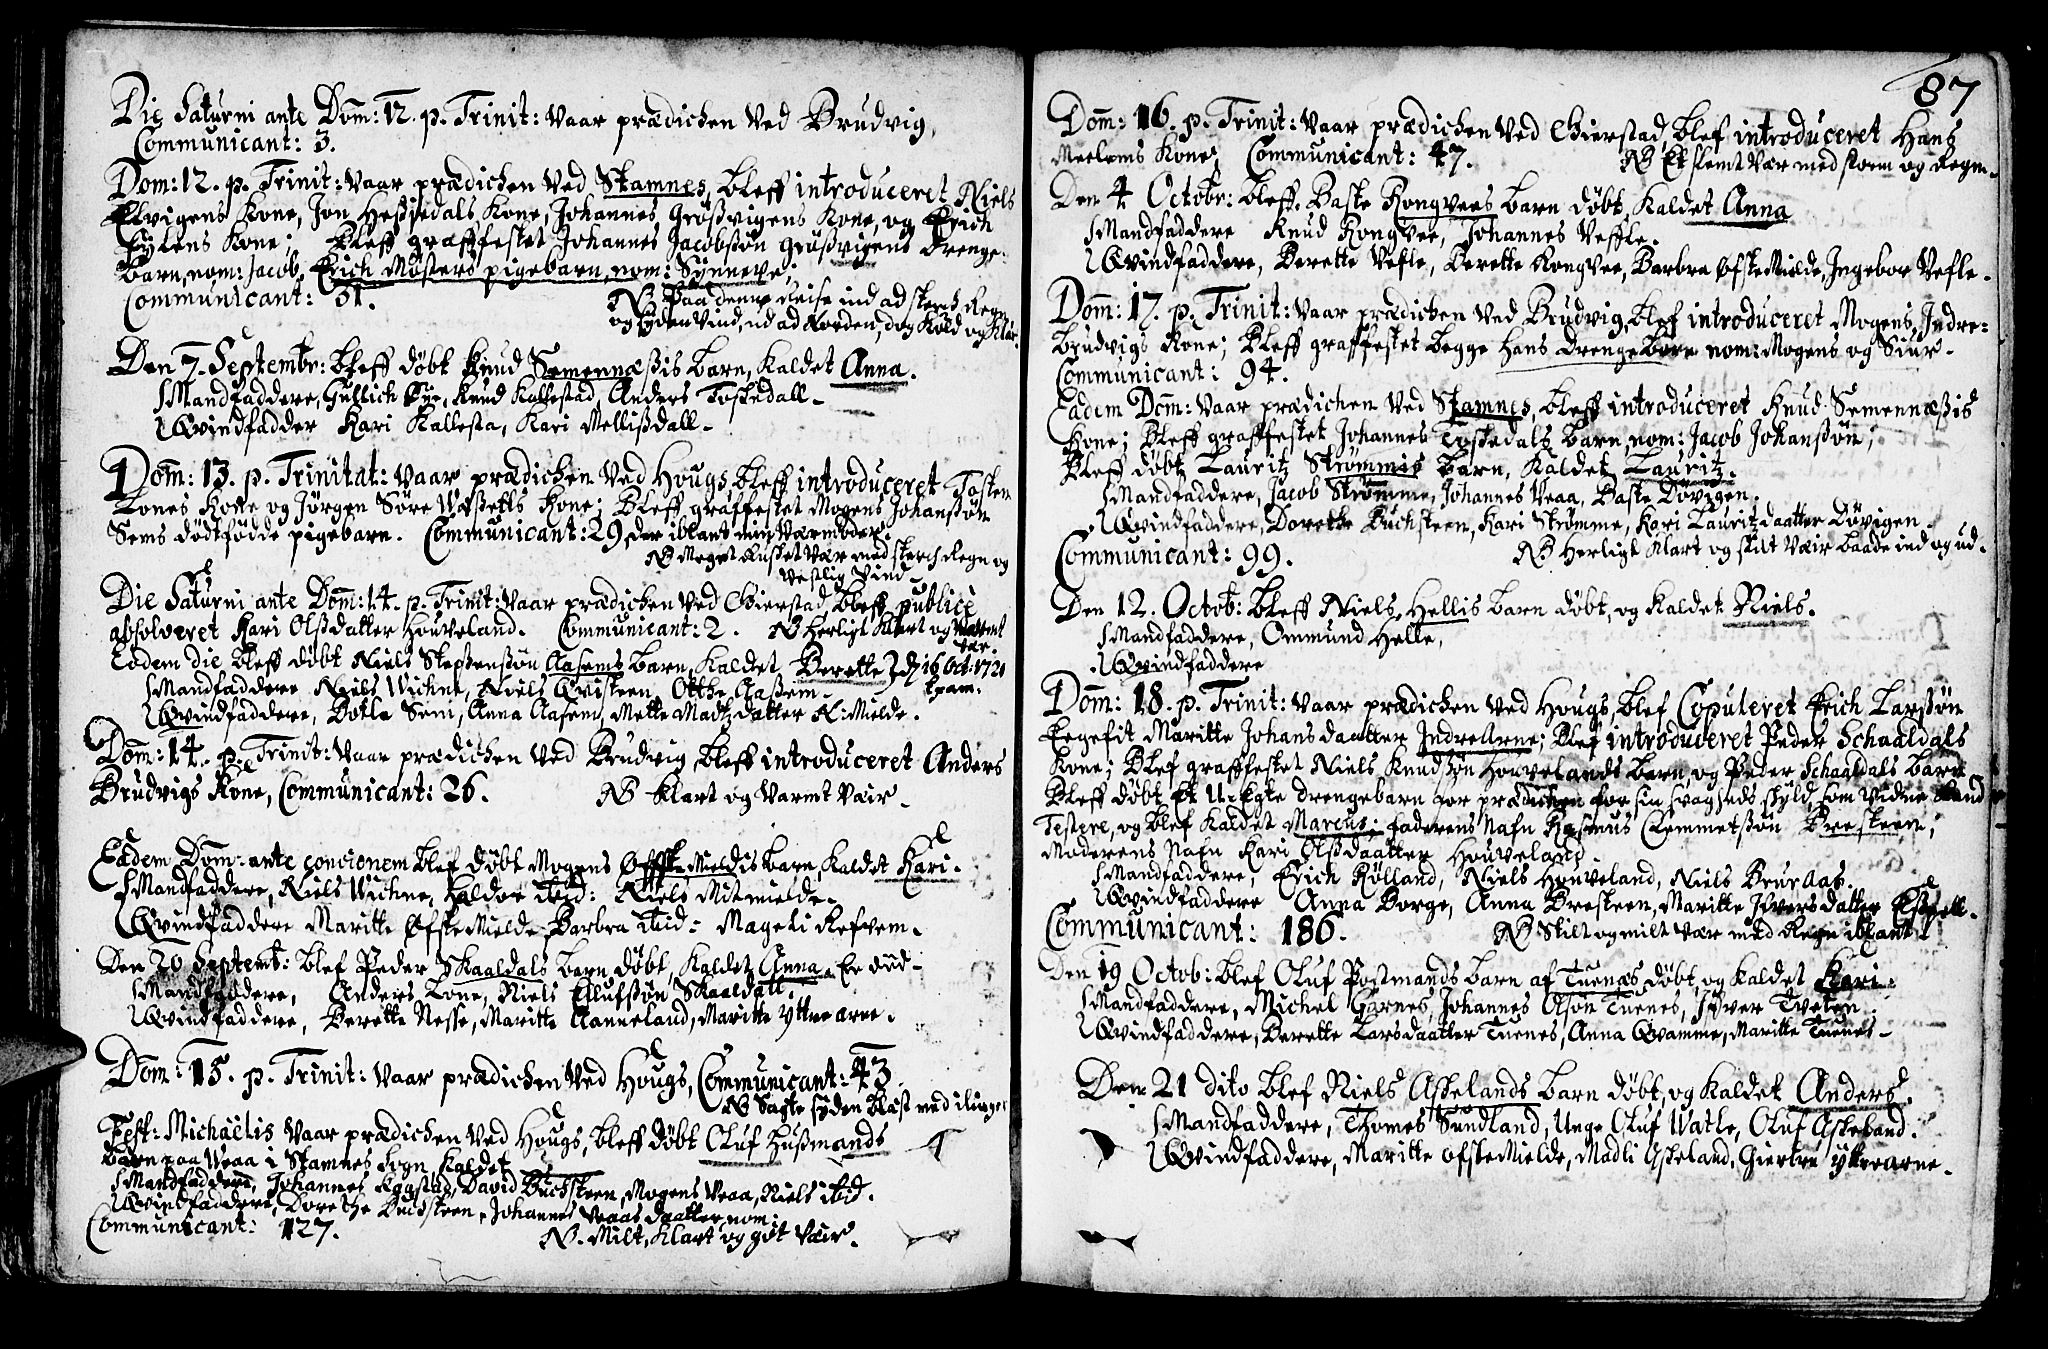 Die Saturni ante Dom: 12. p. Trinit: Vaar prædichen Ved Brudvig,
Communicant: 3.
Dom: 12. p. Trinit: Vaar prædichen Ved Stamnes, bleff introduceret Niels
Elvigens Kone, Jon Hessiedals Kone, Johannes Grossvigens Kone, og Erich
Fylens Kone; Bleff graffestet Johannes Jacobssøn Grossvigens drenge-
barn, nom: Jacob, Erich Mosters pigebarn, nom: Synneve.
Communicant: 31. NB Paa denne Reise ind ad sterch Regn
og synden Vind, ud ad Norden, dog Kold og Klar.
Den 7. Septembr: bleff døbt Knud Semennæssis barn, Kaldet Anna.
Mandfaddere, Gullich Bye, Knud Kallestad, Anders Toskedall.
Qvindfadder Kari Kallesta, Kari Mellissdall.
Dom: 13. p. Trinitat: Vaar prædichen Ved Hougs, bleff introduceret Tosten
Lones Kone og Jørgen Søre Unssetts Kone; Bleff graffestet Mogens Johanssøn
Sems dødfødde pigebarn. Communicant: 29, der iblant min Værmoder.
NB Meget Rusket Vær med sterch Regn og
vestlig Vind.
Die Saturni ante Dom: 14. p. Trinit: Vaar prædichen Ved Gierstad, bleff publicè
absolveret Kari Olssdatter Houveland. Communicant: 2. NB herligt Klart og Varmt
Vær.
Eodem die bleff døbt Niels Steffenssøn Aasems barn, Kaldet Berette
Mandfaddere Niels Wichne, Niels Qvisteen, Otthe Aassem.
Qvindfaddere, Botla Seni, Anna Aasem, Mette Madtzdatter N: Mielde.
Dom: 14. p. Trinit: Vaar prædichen Ved Brudvig, bleff introduceret Anders
Brudvigs Kone, Communicant: 26. NB Klart og Varmt Vair.
Eâdem Dom: ante concionem blef døbt Mogens Øffste Mieldis barn, Kaldet Kari.
Mandfaddere, Niels Wichne, Haldor ibid: Niels Mitmielde.
Qvindfaddere Maritte Øfste Mielde, Barbra ibid: Mageli Refvem.
Den 20 Septemb: blef Peder Skaaldals barn døbt, Kaldet Anna. Er død.
Mandfaddere, Anders Lone, Niels Ellufssøn Skaaldall.
Qvindfaddere, Berette Nesse, Maritte Aanneland, Maritte Yttrearne.
Dom: 15. p. Trinit: Vaar prædichen Ved Hougs, Communicant: 43
NB Sagte synden blæst med ilinger
Fest: Michaëlis Vaar prædichen Ved Hougs, bleff døbt Oluf Hussmands
barn paa Veaa i Stamnes Sogn, Kaldet
Mandfaddere, Johannes Eggstad, David Buchsteen, Mogens Veaa, Niels ibid.
Qvindfaddere, Dorethe Buchsteen, Johannes Veaas daatter, nom:
Communicant: 127. NB. Milt, Klart og got Vair.
87
Dom: 16. p. Trinit: Vaar prædichen Ved Gierstad, blef introduceret Hans
Meelems Kone; Communicant: 47. NB Et slemt Vær med storm og Regn.
Den 4 Octobr: bleff Baste Rongvees barn døbt, Kaldet Anna
Mandfaddere Knud Rongvee, Johannes Veffle.
Qvindfaddere, Berette Vefle, Berette Rongvee, Barbra Øfste Mielde, Ingebor Vefle.
Dom: 17. p. Trinit: Vaar prædichen Ved Brudvig, blef introduceret Mogens Indre-
brudvigs Kone; Bleff graffestet begge Hans drengebørn nom: Mogens og Siur.
Communicant: 94.
Eadem Dom: Vaar prædichen Ved Stamnes, bleff introduceret Knud Semennæssis
Kone; Bleff graffestet Johannes Tossedals barn, nom: Jacob Johanssøn;
Bleff døbt Lauritz Strømmis barn, Kaldet Lauritz.
Mandfaddere, Jacob Strømme, Johannes Veaa, Baste Døvigen.
Qvindfaddere, Dorethe Buchsteen, Kari Strømme, Kari Lauritzdaatter Døvigen.
Communicant: 99. NB Herligt Klart og stilt Vair baade ind og ud.
Den 12. Octob: bleff Niels Hellis barn døbt, og Kaldet Niels.
Mandfaddere, Ommund Helle,
Qvindfaddere
Dom: 18. p. Trinit: Vaar prædichen Ved Hougs, blef Copuleret Erich Larssøn
Maritte Johansdaatter Indre Arne; Blef introduceret Peder Schaaldals
Kone; Blef graffestet Niels Knudssøn Houvelands barn, og Peder Schaaldals barn
Bleff døbt Et U-Egte drengebarn for prædichen for sin svagheds skyld, som vidne
Testere, og blef Kaldet Marcus; faderens Nafn Rasmus Clemmetssøn Bresteen,
Moderens Nafn Kari Olssdaatter Houveland.
Mandfaddere, Erich Rølland, Niels Houveland, Niels Bruraas.
Qvindfaddere Anna Borge, Anna Bresteen, Maritte Ifversdatter
Communicant: 186. NB Stilt og milt Vær med Regn iblant.
Den 19 Octob: blef Oluf Postmands barn af Tuenæs døbt, og Kaldet Kari.
Mandfaddere, Michel Garnes, Johannes Olssøn Tuenes, Ifver Tveten.
Qvindfaddere, Berette Larsdaatter Tuenes, Anna Qvamme, Maritte Tuenes.
Den 21 dito blef Niels Askelands barn døbt, og Kaldet Anders.
Mandfaddere, Thomes Sundland, Unge Oluf Watle, Oluf Askeland.
Qvindfaddere, Maritte øfste Mielde, Madli Askeland, Giertru Yttrearne.